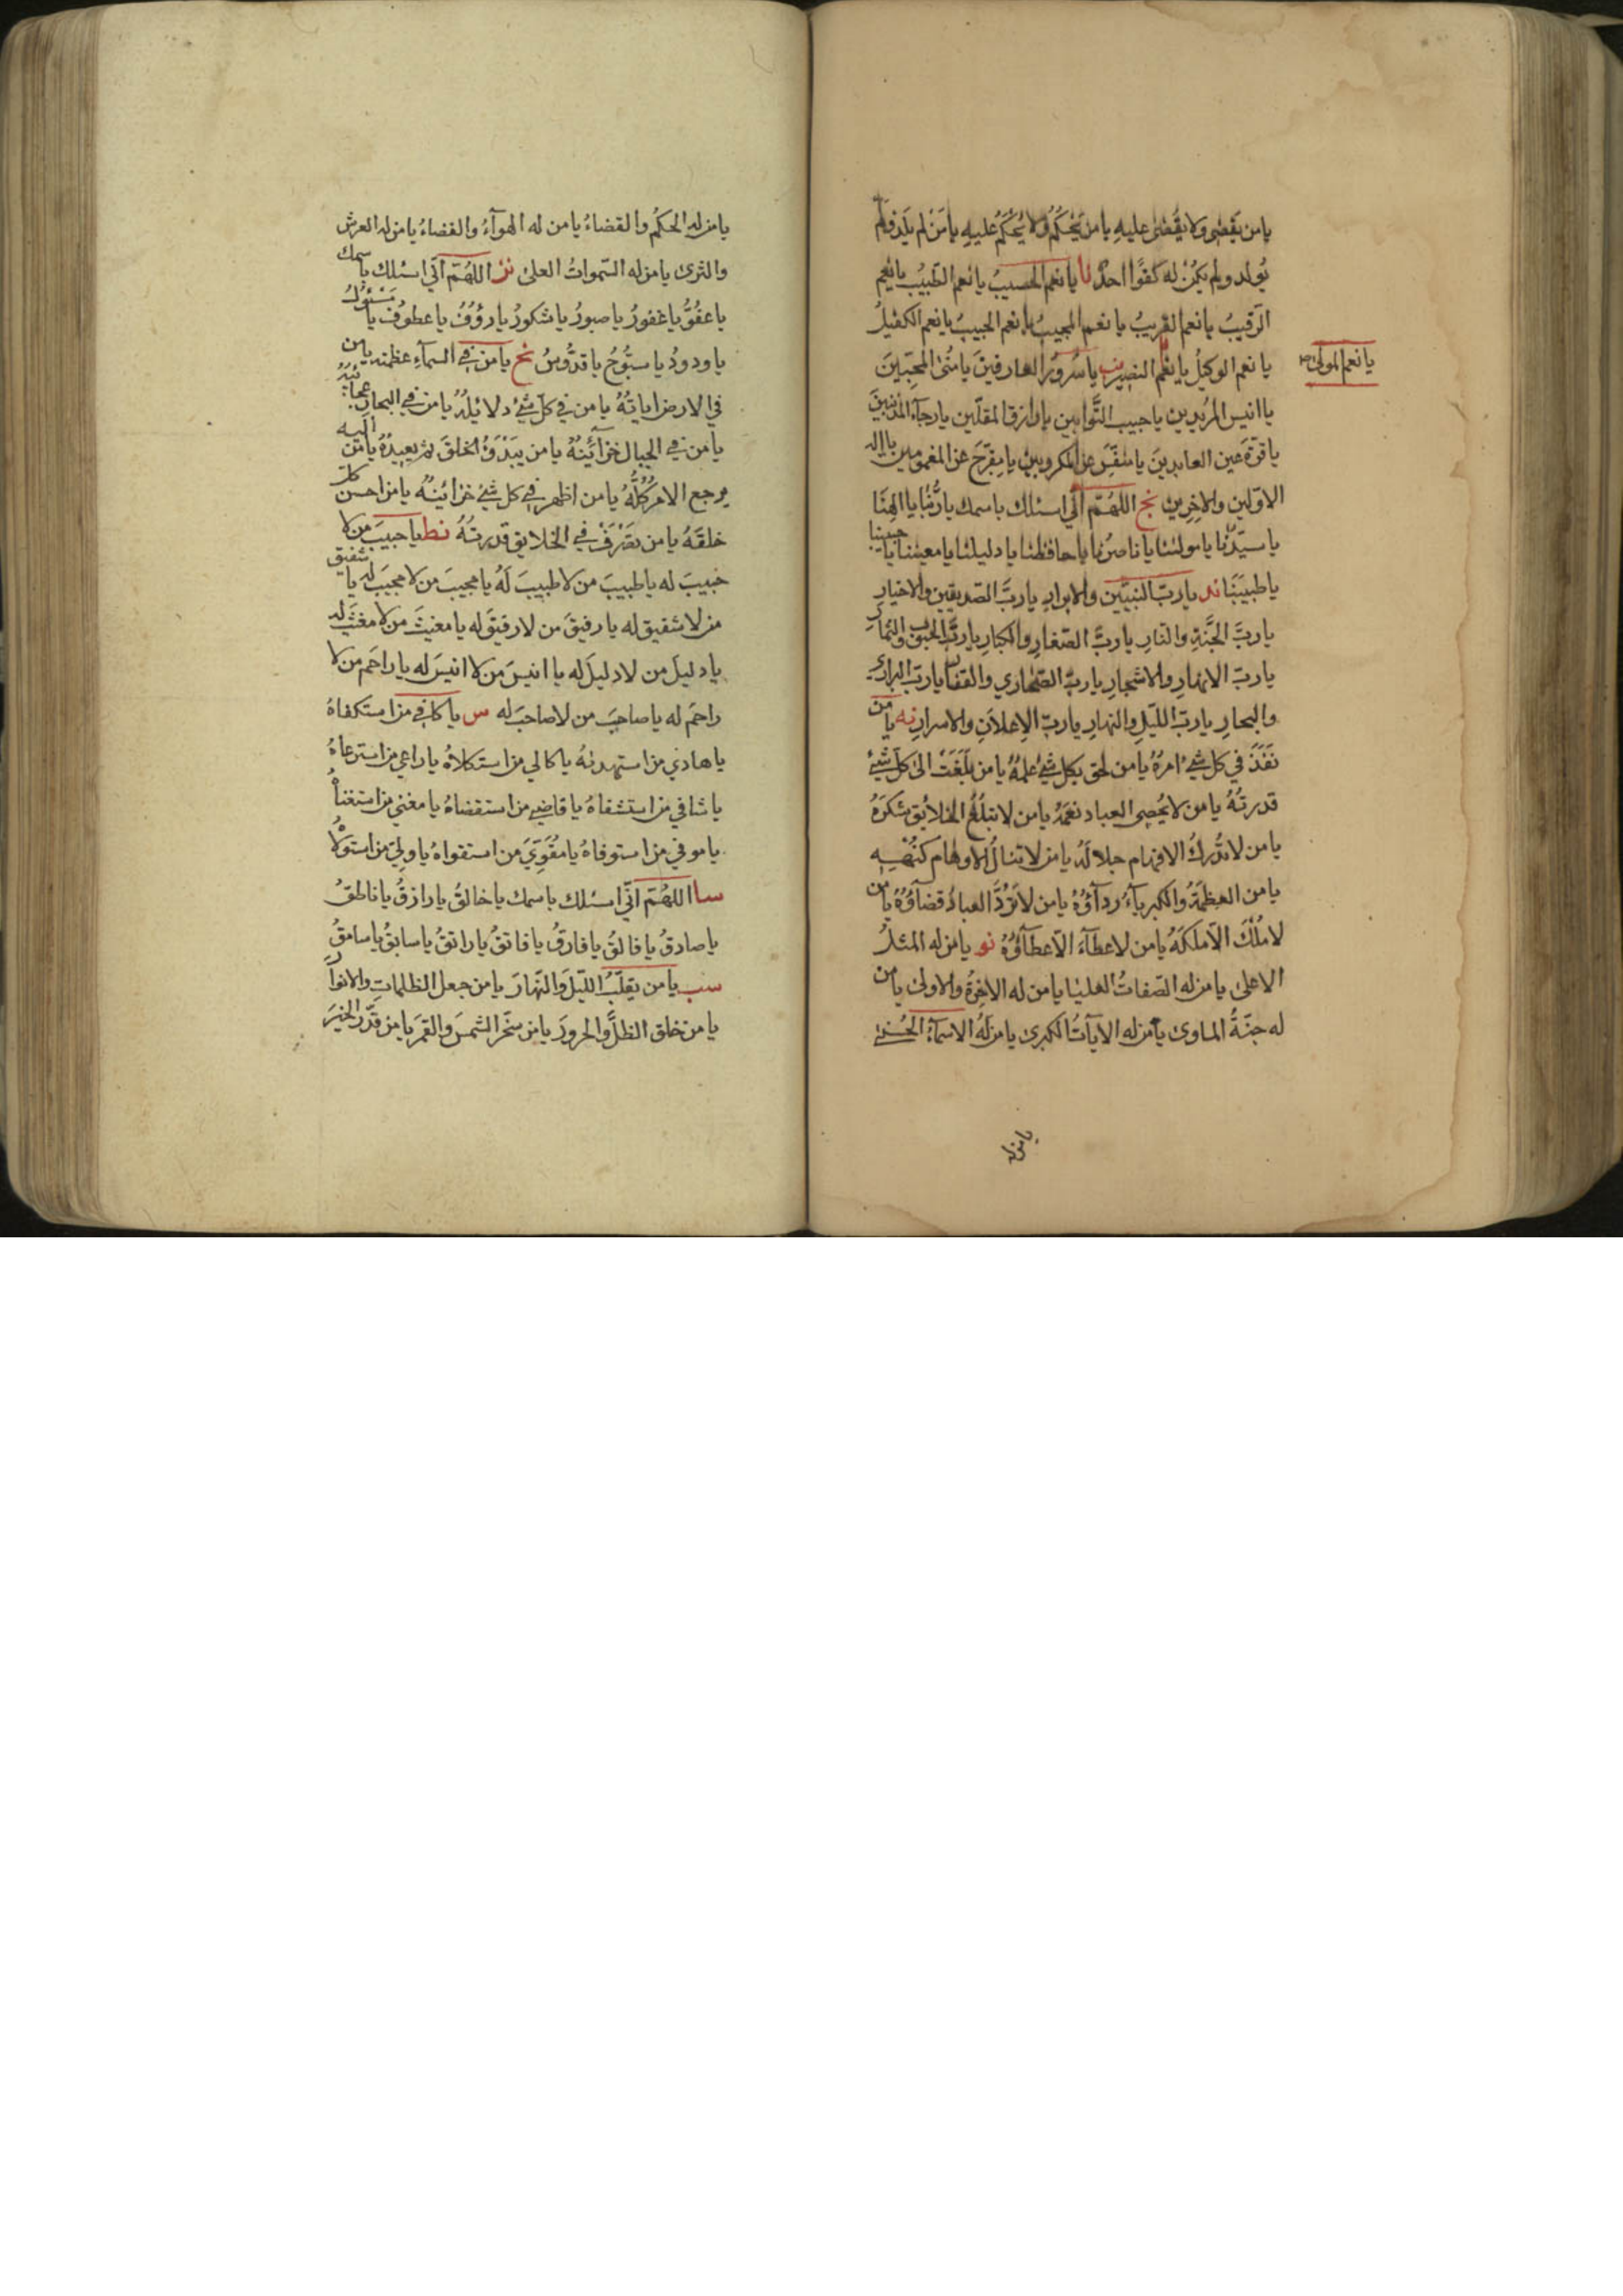 يا من يَقضى ولا يُقضىٰ عليهِ يا من يَحْكُمُ ولا يُحْكَمُ عليهِ يا مَنْ لم يَلِد ولم
يُولد ولم يكُنْ له كفوًا احدٌ نا يا نعم الحسيبُ يا نعم الطّبيبُ يا نعم
الرّقيبُ يا نعم القريبُ يا نعم المجيبُ يا نعم الحبيبُ يا نعم الكفيلُ
يا نعم الوكيلُ يا نعم النصير نب يا سُرورَ العارفينَ يا مُنىٰ المحبّينَ
يا نعم المولىٰ صح
يا انيس المُريدين يا حبيب التَّوابين يا رازق المقلّين يا رجآء المذنبينَ
يا قرّةَ عين العابدينَ يا منفّسَ عن المكروبين يا مفرّجَ عن المغمومين يا اله
الاوّلين والاخِرِين نج اللهُمّ انّي اسئلك باسمك يا ربَّنا يا الهنَا
يا سيّدَنا يا مولٰنا يا ناصرنا يا حافظنا يا دليلنا يا معيننا يا حبيبنا
يا طبيبَنَا ند يا ربّ النبيّين والابرارِ يا ربَّ الصّديقين والاخيارِ
يا ربَّ الجَنّةِ والنّارِ يا ربَّ الصّغارِ والكبارِ يا ربَّ الحبوب والثمار
يا ربّ الانهارِ والاشجارِ يا ربّ الصّحاري والقفار يا ربّ البراري
والبحارِ يا ربّ اللّيلِ والنهارِ يا ربّ الاِعلانِ والاسرارِ نه يا من
نَفَذَ في كل شيء امرُهُ يا من لحق بكل شيء علمُهُ يا من بَلَغَتْ الىٰ كل شيء
قدرتُهُ يا من لا يُحصِى العباد نعمَهُ يا من لا تبلُغُ الخلايُق شكرَهُ
يا من لا تُدركُ الافهام جلالَهُ يا من لا تنالُ الاوهام كنُهْهِهِ
يا من العظمَةُ والكبرياءُ ردآؤُهُ يا من لا تَرُدَّ العبادُ قضآؤُهُ يا من
لا مُلْكَ الّا ملكَهُ يا من لا عطآءَ الّا عطآؤُهُ نو يا من له المثلُ
الاعلىٰ يا من له الصّفاتُ العليٰا يا من له الاخِرةُ والاولىٰ يا من
له جنّةُ الماوىٰ يا من له الايآتُ الكبرىٰ يا من لَهُ الاسمآءُ الحُسنىٰ
يا من له
يا من له الحكمُ والقضاءُ يا من له الهوآءُ والفضاءُ يا من له العرش
والثرىٰ يا من له السّمواتُ العلىٰ نز اللهُمّ انّي اسئلك باسمك
يا عفُوُّ يا غفورُ يا صبورُ يا شكورُ يا رؤفُ يا عطوُف يا مَسْئُولُ
يا ودودُ يا سبّوُحُ يا قدُّوسُ نح يا من في السمآءِ عظمته يا من
في الارض اياتُهُ يا من في كلّ شيءٍ دلائلُهُ يا من في البحار عجائبُهُ
يا من في الجبال خزآئنُهُ يا من يَبْدَؤُ الخلقَ ثم يعيدُهُ يا من اليه
يرجع الامر كُلُّهُ يا من اظهر في كل شيءٍ خزائنُهُ يا من احسن كلّ
خلقَهُ يا من تصَرّفَ في الخلايقِ قدرتُهُ نط يا حبيبَ من لا
حبيبَ له يا طبيبَ من لا طبيبَ لَهُ يا مجيبَ من لا مجيبَ له يا شفيق
من لا شفيق له يا رفيقَ من لا رفيقَ له يا مغيثَ من لا مغيثَ له
يا دليلَ من لا دليلَ له يا انيسَ من لا انيسَ له يا راحمَ من لا
راحمَ له يا صاحبَ من لا صاحبَ له س يا كافي من استكفاهُ
يا هادي من استهدٮٰهُ يا كالي من استكلاهُ يا راعي من استرعاهُ
يا شافي من استشفاهُ يا قاضي من استقضاهُ يا مغني من استغناهُ
يا موفي من استوفاهُ يا مقَوّيَ من استقواهُ يا وليَّ من استولاهُ
سا اللهُمّ انّي اسئلك باسمك يا خالقُ يا رازقُ يا ناطقُ
يا صادقُ يا فالقُ يا فارقُ يا فاتقُ يا راتقُ يا سابقُ يا سامقُ
سب يا من يقلّبُ اللّيلَ والنّهارَ يا من جعل الظلماتِ والانوار
يا من خلق الظلَّ والحرورَ يا من سخّر الشمسَ والقمرَ يا من قدّر الخيرَ